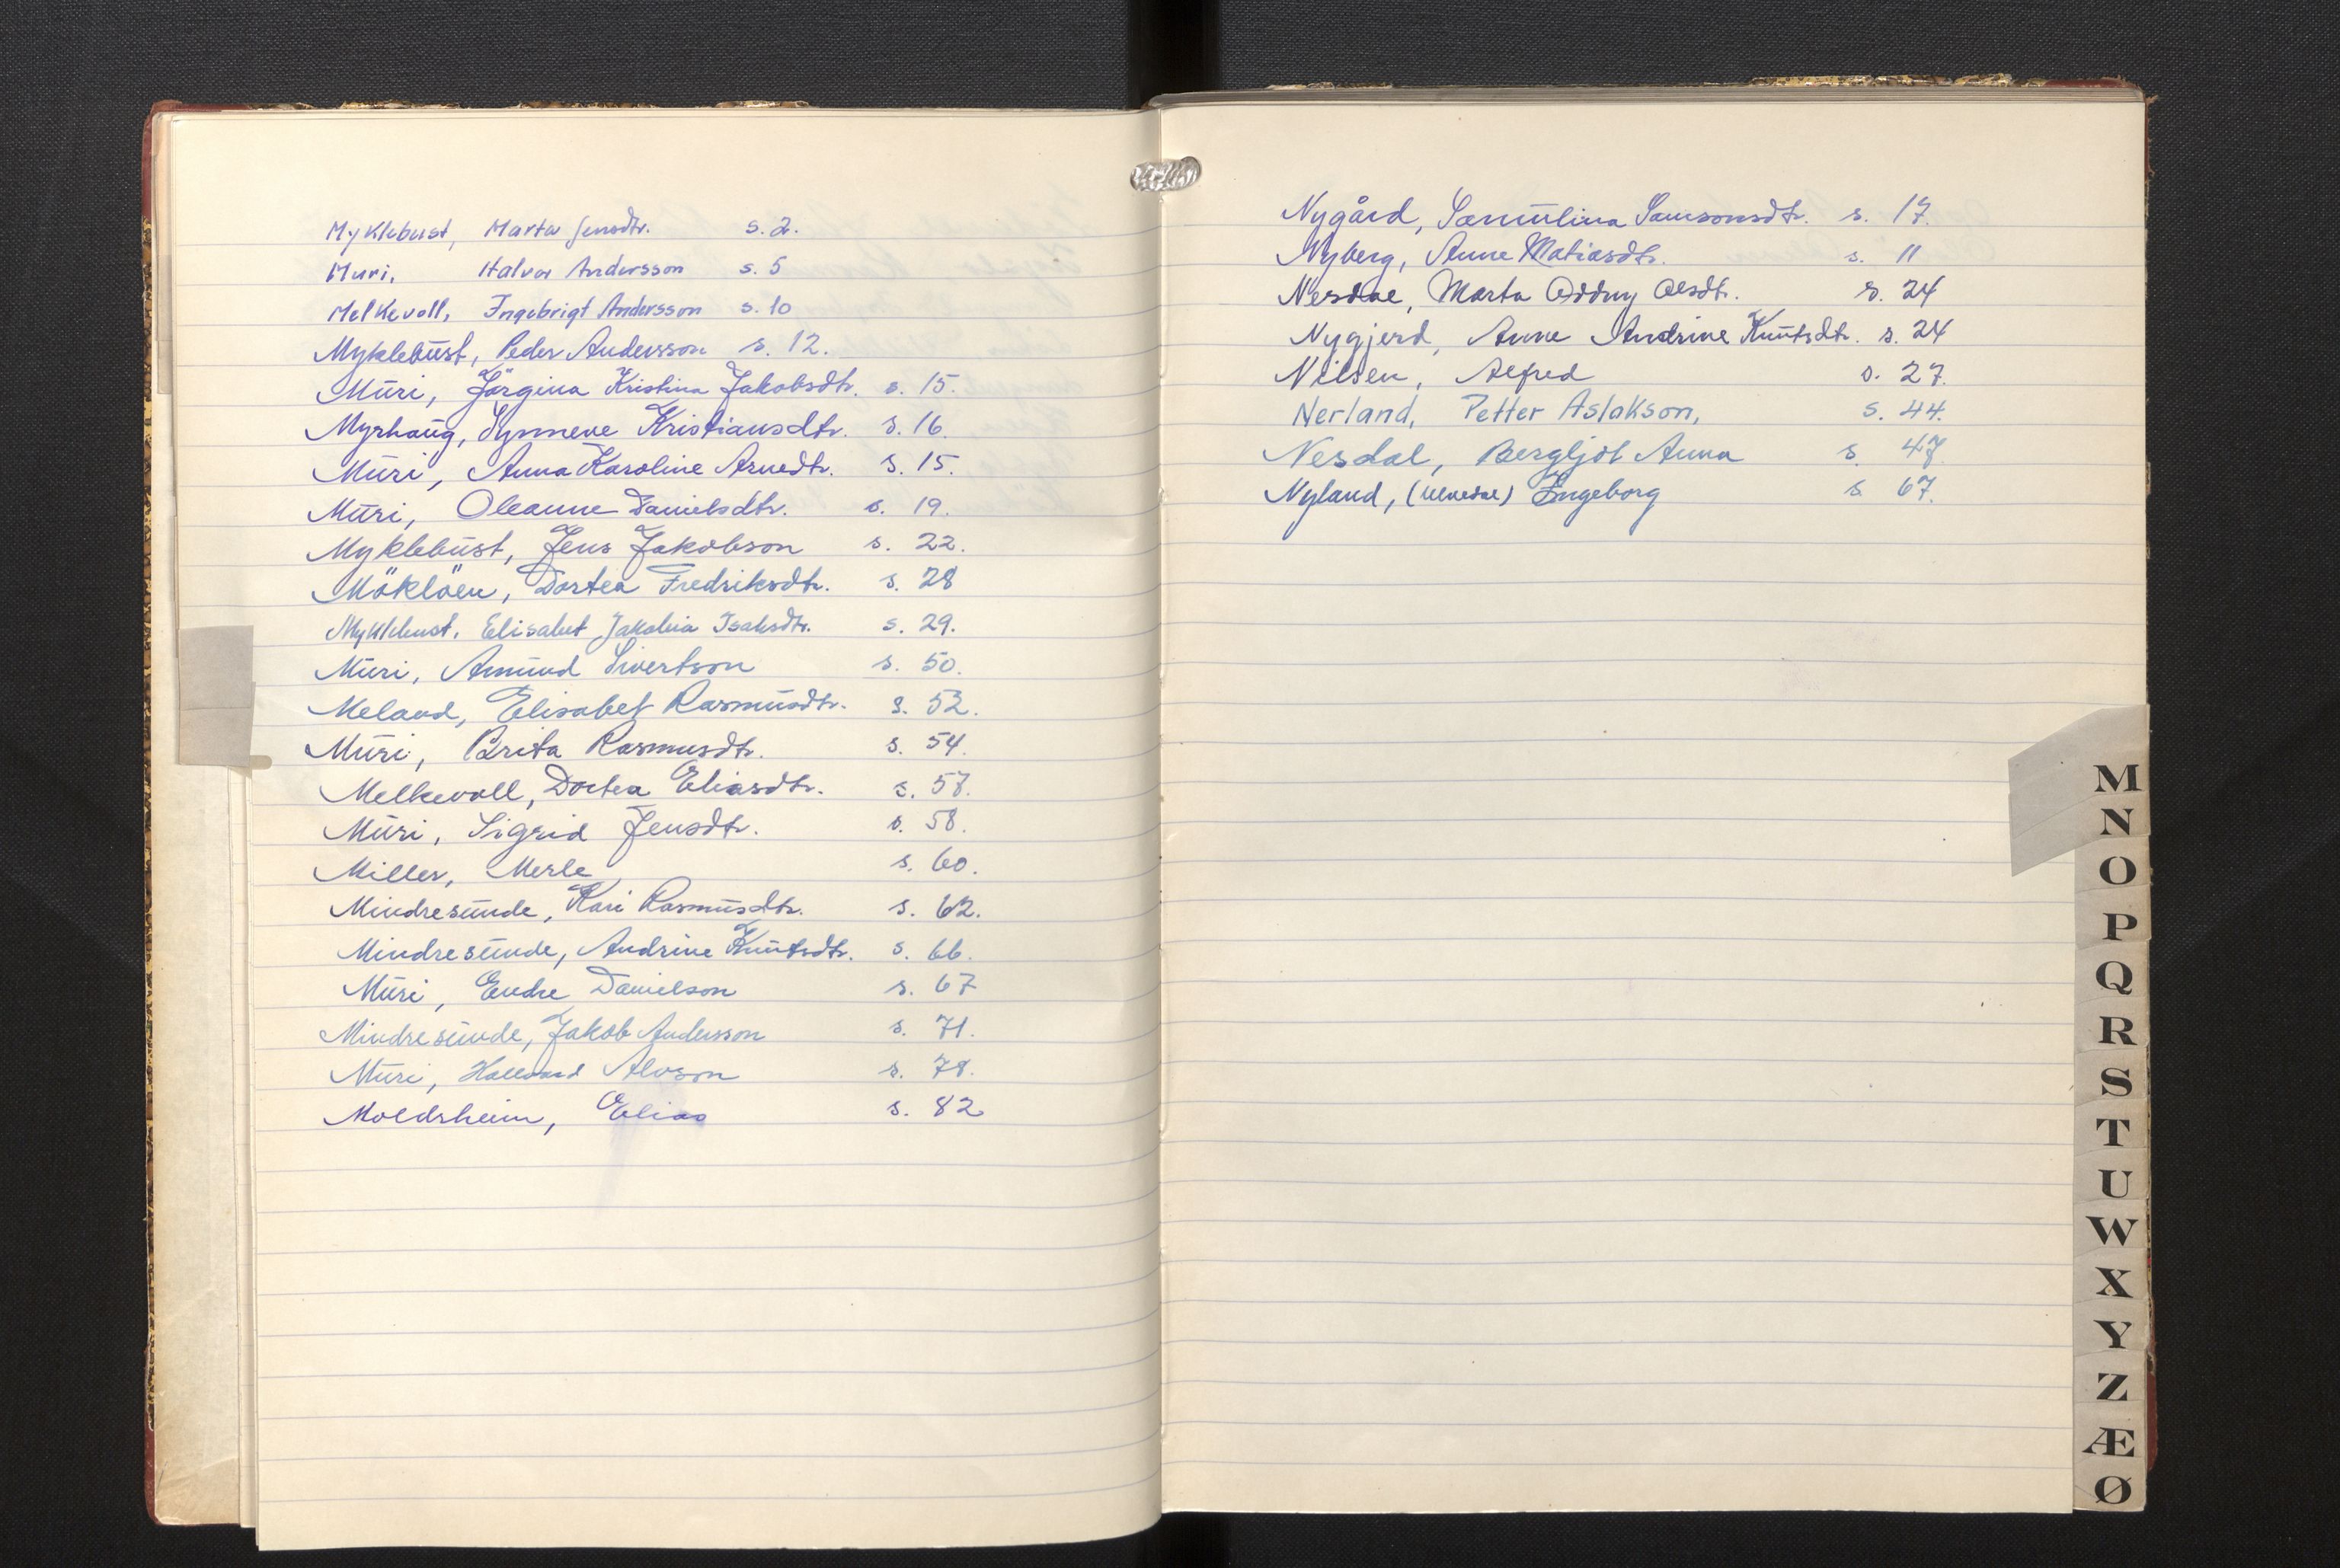 Myklebust, Marta Jensdtr. s. 2.
Muri, Halvor Andersson s. 5
Melkevoll, Ingebrigt Andersson s. 10
Myklebust, Peder Andersson s. 12.
Muri, Jörgina Kristina Jakobsdtr. s. 15.
Myrhaug, Synneve Kristiansdtr. s. 16.
Muri, Anna Karoline Arnedtr. s. 15.
Muri, Oleanne Danielsdtr. s. 19.
Myklebust, Jens Jakobson s. 22.
Mökloen, Dortea Fredriksdtr. s. 28
Myklebust, Elisabet Jakobia Isaksdtr. s. 29.
Muri, Amund Sivertson s. 50.
Meland, Elisabet Rasmusdtr. s. 52.
Muri, Brita Rasmusdtr. s. 54.
Melkevoll, Dortea Eliasdtr. s. 57.
Muri, Sigrid Jensdtr. s. 58.
Miller, Merle s. 60.
Mindresunde, Kari Rasmusdtr. s. 62.
Mindresunde, Andrine Knutsdtr. s. 66.
Muri, Endre Danielson s. 67
Mindresunde, Jakob Andersson s. 71.
Muri, Hallvard Alvson s. 78.
Moldsheim, Elias s. 82
Nygård, Samulina Samsonsdtr. s. 17.
Nyberg, Anne Matiasdtr. s. 11
Nesdal, Marta Oddny Olsdtr. s. 24
Nygjerd, Anne Andrine Knutsdtr. s. 24
Nilsen, Alfred s. 27.
Nerland, Petter Aslakson, s. 44.
Nesdal, Bergljot Anna s. 47.
Nyland, Ingeborg s. 67.
M
N
O
P
Q
R
S
T
U
W
X
Y
Z
Æ
Ø